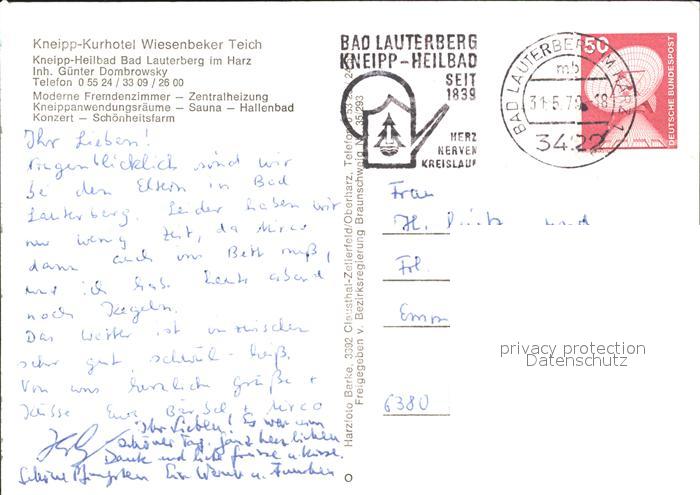 Kneipp-Kurhotel Wiesenbeker Teich
Kneipp-Heilbad Bad Lauterberg im Harz
Inh. Günter Dombrowsky
Telefon 0 55 24 / 33 09 / 26 00
Moderne Fremdenzimmer – Zentralheizung
Kneippanwendungsräume – Sauna – Hallenbad
Konzert – Schönheitsfarm
Ihr Lieben!
Augenblicklich sind wir
bei den Eltern in Bad
Lauterberg. Leider haben wir
nur wenig Zeit, da Mirco
dann auch ins Bett muß,
und ich hab heute abend
noch Kegeln.
Das Wetter ist inzwischen
sehr gut, schwül-heiß.
Von uns herzlich grüße +
Küsse Eure Bärbel + Mirco
Ihr Lieben! Es war ein
schöner Tag. ganz herzlichen
Dank und liebe Grüsse u. Küsse.
Schöne Pfingsten Eu
Harzfoto Barke, 3392 Clausthal-Zellerfeld/Oberharz, Telefon
Freigegeben v. Bezirksregierung Braunschweig
BAD LAUTERBERG
KNEIPP-HEILBAD
SEIT
1839
HERZ
NERVEN
KREISLAUF
BAD LAUTERBERG IM HARZ 1
mb
31.5.79-18
3422
50
DEUTSCHE BUNDESPOST
Frau
H. und
Frl.
6380
privacy protection
Datenschutz